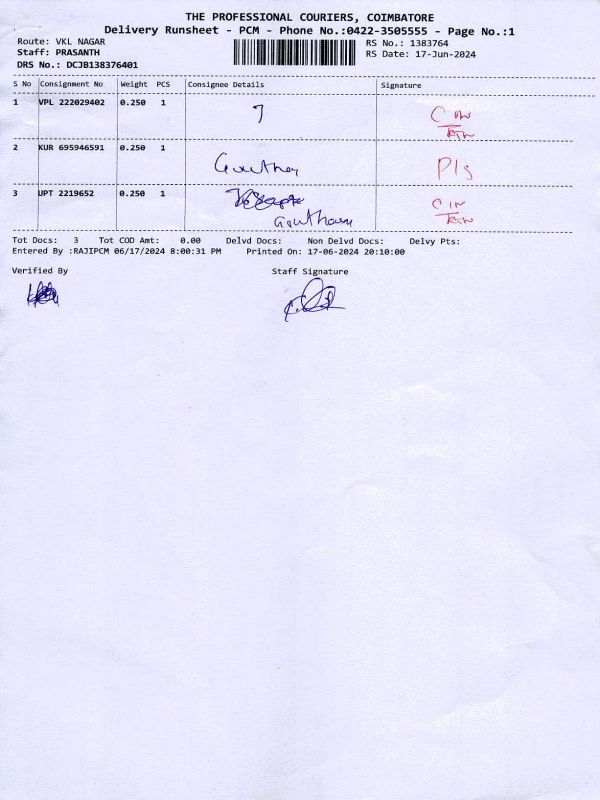 THE PROFESSIONAL COURIERS, COIMBATORE
Delivery Runsheet - PCM - Phone No.:0422-3505555 - Page No.:1
Route: VKL NAGAR
Staff: PRASANTH
DRS No.: DCJB138376401
RS No.: 1383764
RS Date: 17-Jun-2024
S No Consignment No Weight PCS Consignee Details Signature
1 VPL 222029402 0.250 1
2 KUR 695946591 0.250 1
3 UPT 2219652 0.250 1
Gowtham
Tot Docs: 3 Tot COD Amt: 0.00 Delvd Docs: Non Delvd Docs: Delvy Pts:
Entered By :RAJIPCM 06/17/2024 8:00:31 PM Printed On: 17-06-2024 20:10:00
Verified By Staff Signature